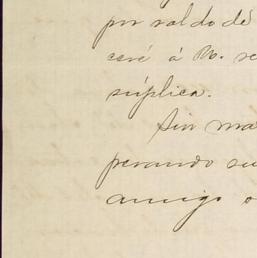 por saldo dé
ceré á M. re
súplica.
Sin ma
perando su
amigo